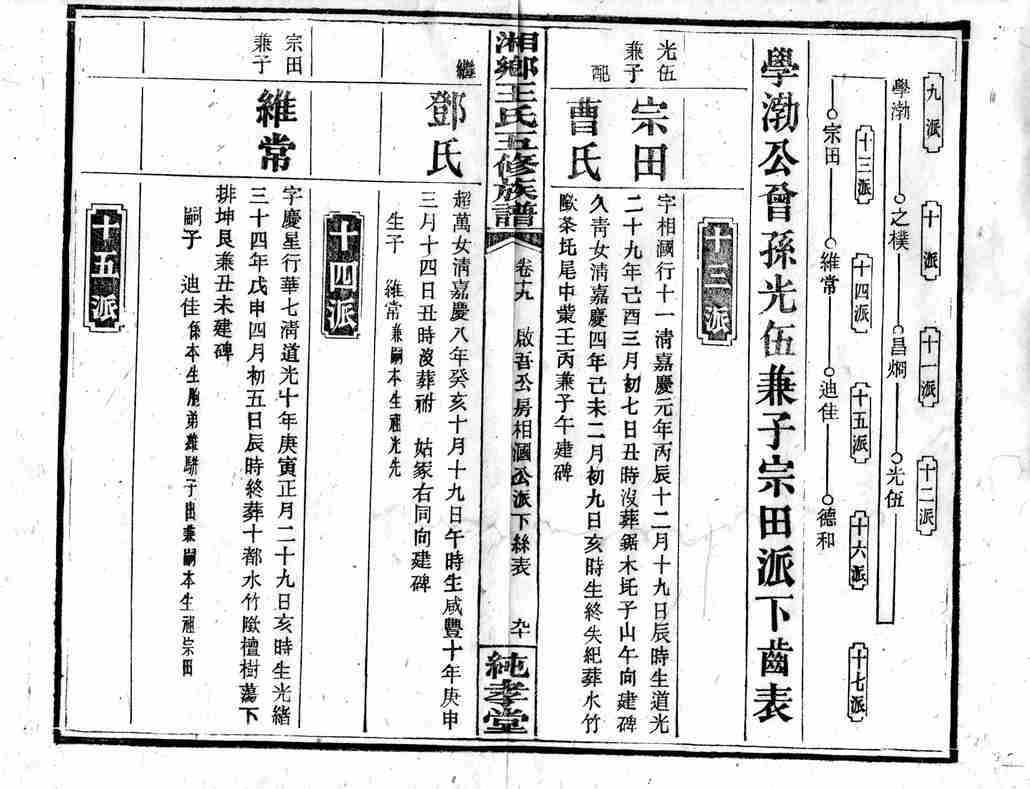 九派
學渤
之樸
十派
昌烱
十一派
光伍
十二派
十三派
宗田
十四派
維常
十五派
迪佳
十六派
德和
十七派
學渤公曾孫光伍兼子宗田派下齒表
十三派
光伍
兼子
宗田
字相國行十一清嘉慶元年丙辰十二月十九日辰時生道光
二十九年己酉三月初七日丑時沒葬鋸木坵子山午向建碑
配
曹氏
久靑女清嘉慶四年己未二月初九日亥時生終失紀葬水竹
歐茶坵尾中業壬丙兼子午建碑
湘鄉王氏五修族譜
卷十九
啟吾公房相國公派下絲表
九十
純孝堂
繼
鄧氏
超萬女清嘉慶八年癸亥十月十九日午時生咸豐十年庚申
三月十四日丑時沒葬祔 姑冢右同向建碑
生子 維常兼嗣本生祖光先
十四派
宗田
兼子
維常
字慶星行華七清道光十年庚寅正月二十九日亥時生光緒
三十四年戊申四月初五日辰時終葬十都水竹歐檀樹蕩下
排坤艮兼丑未建碑
嗣子 迪佳係本生胞弟維騈子出兼嗣本生祖宗田
十五派